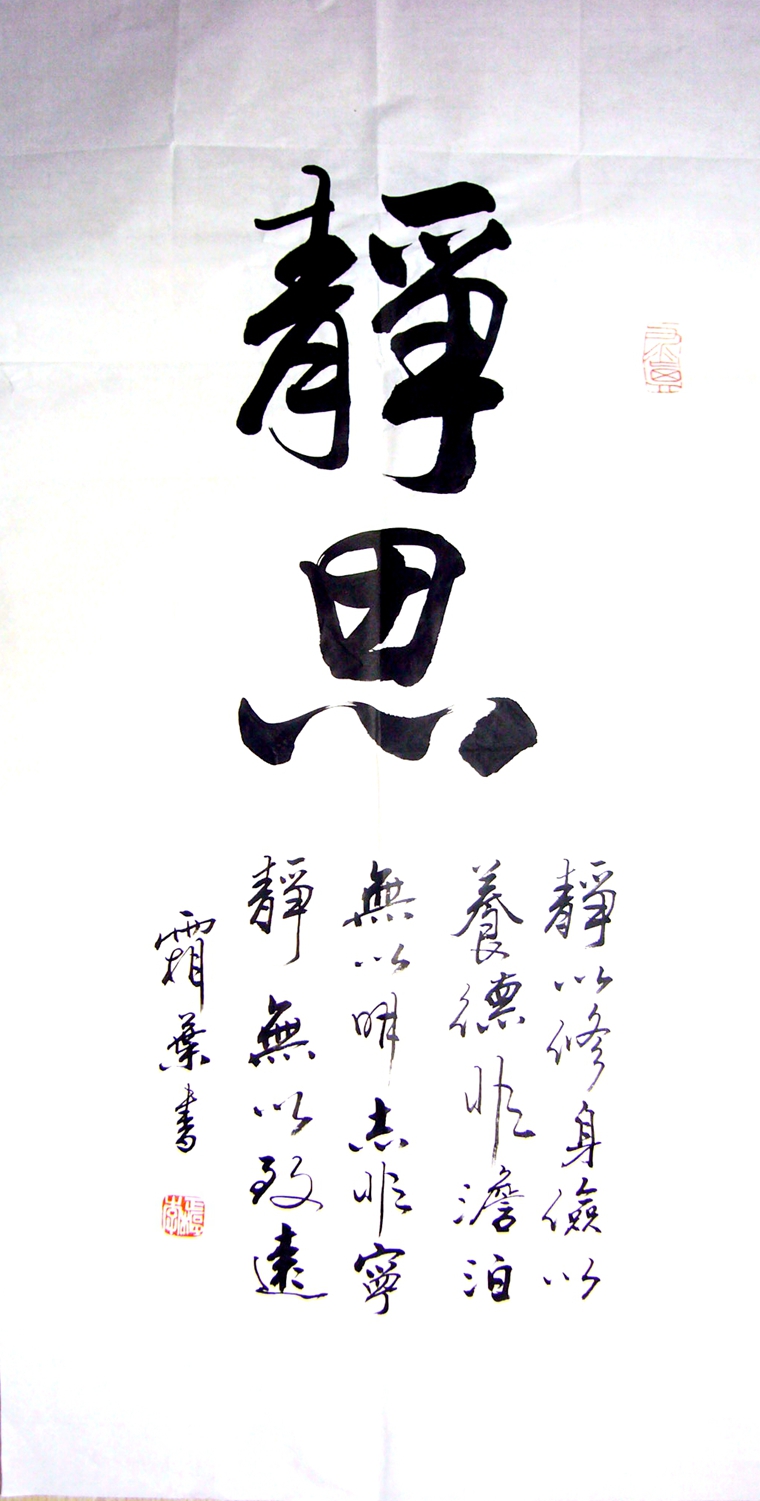 靜思
靜以修身儉以
養德非澹泊
無以明志非寧
靜無以致遠
霜葉書